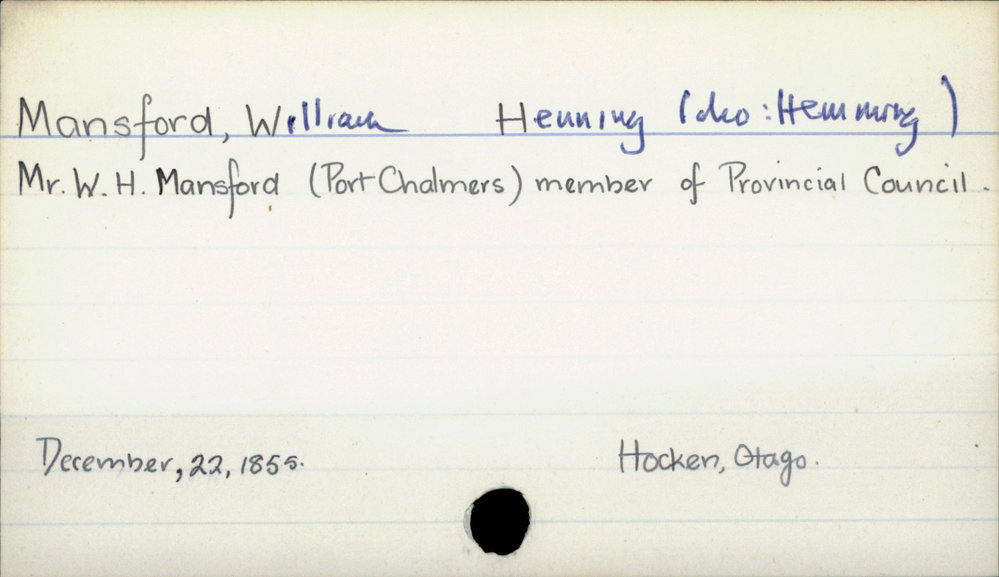 Mansford, William Henning (also: Hemming)
Mr. W. H. Mansford (Port Chalmers) member of Provincial Council.
December, 22, 1855.
Hocken, Otago.